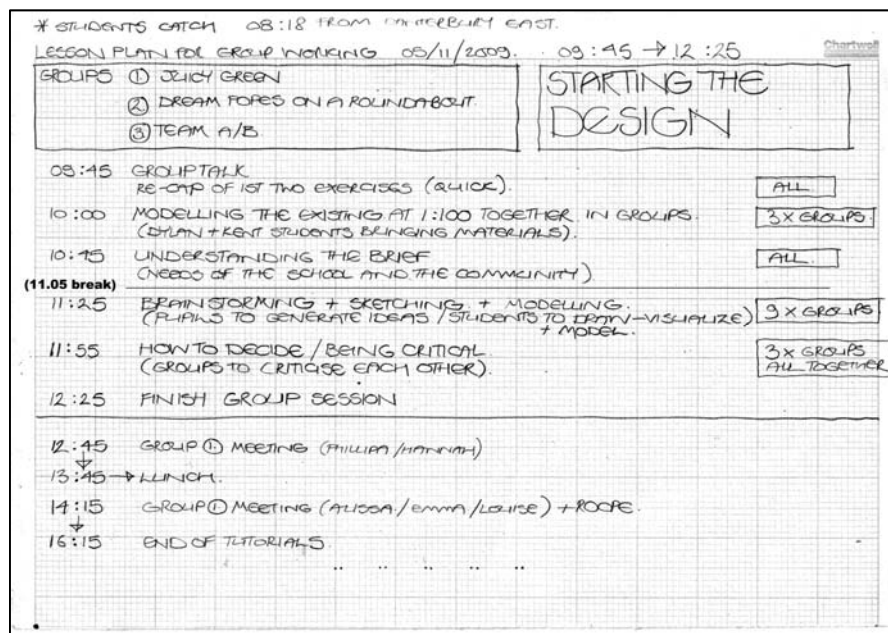 * STUDENTS CATCH 08:18 FROM CANTERBURY EAST.
LESSON PLAN FOR GROUP WORKING 05/11/2009. 09:45 → 12:25
Chartwell
GROUPS ① JUICY GREEN
② DREAM POPES ON A ROUNDABOUT.
③ TEAM A/B.
STARTING THE
DESIGN
09:45 GROUP TALK
RE-CAP OF 1ST TWO EXERCISES (QUICK). ALL
10:00 MODELLING THE EXISTING AT 1:100 TOGETHER IN GROUPS. 3 X GROUPS.
(DYLAN + KENT STUDENTS BRINGING MATERIALS).
10:45 UNDERSTANDING THE BRIEF ALL.
(NEEDS OF THE SCHOOL AND THE COMMUNITY)
(11.05 break)
11:25 BRAINSTORMING + SKETCHING + MODELLING.
(PUPILS TO GENERATE IDEAS / STUDENTS TO DRAW-VISUALIZE) 9 X GROUPS
+ MODEL.
11:55 HOW TO DECIDE / BEING CRITICAL. 3 X GROUPS
(GROUPS TO CRITICISE EACH OTHER). ALL TOGETHER
12:25 FINISH GROUP SESSION
12:45 GROUP ① MEETING (PHILLIPA / HANNAH)
↓
13:45 → LUNCH.
14:15 GROUP ① MEETING (ALISSA / EMMA / LOUISE) +
↓
16:15 END OF TUTORIALS.